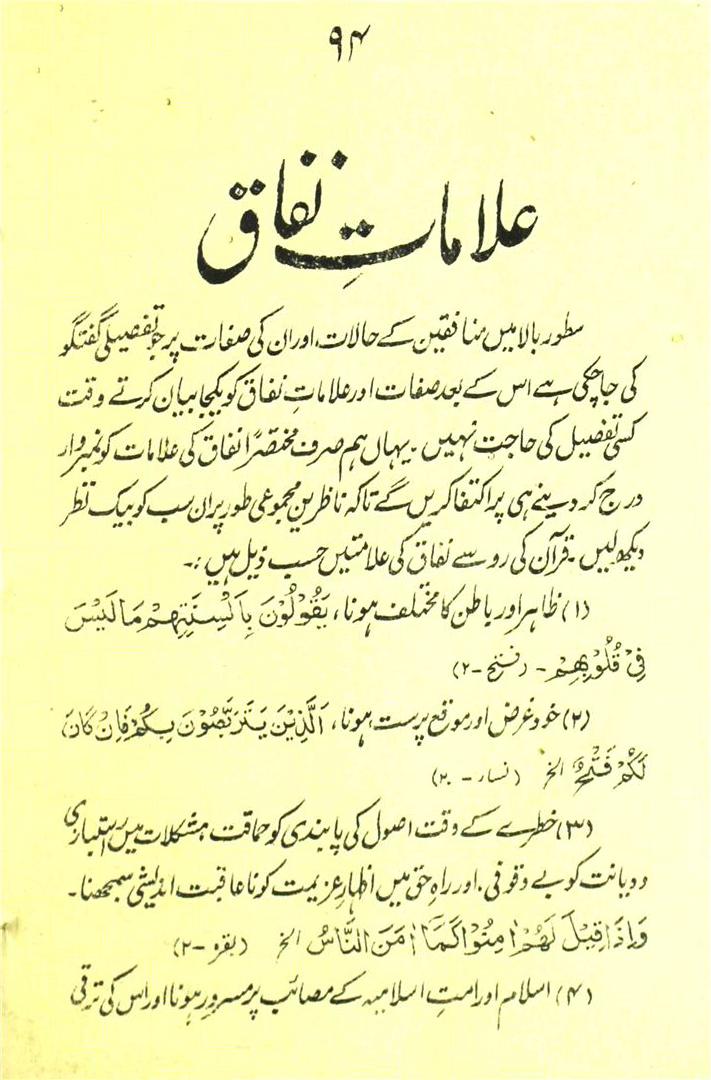 ۹۴
علاماتِ نفاق
سطور بالا میں منافقین کے حالات، اور ان کی صفات پر جو تفصیلی گفتگو
کی جا چکی ہے اس کے بعد صفات اور علاماتِ نفاق کو یکجا بیان کرتے وقت
کسی تفصیل کی حاجت نہیں۔ یہاں ہم صرف مختصراً نفاق کی علامات کو نمبروار
درج کر دینے ہی پر اکتفا کریں گے تاکہ ناظرین مجموعی طور پر ان سب کو بیک نظر
دیکھ لیں۔ قرآن کی رو سے نفاق کی علامتیں حسب ذیل ہیں:۔
(۱) ظاہر اور باطن کا مختلف ہونا، يَقُوْلُوْنَ بِاَلْسِنَتِهِمْ مَا لَيْسَ
فِيْ قُلُوْبِهِمْ - (فتح -۲)
(۲) خود غرض اور موقع پرست ہونا، اَلَّذِيْنَ يَتَرَبَّصُوْنَ بِكُمْ فَاِنْ كَانَ
لَكُمْ فَتْحٌ الخ (نساء - ۲۰)
(۳) خطرے کے وقت اصول کی پابندی کو حماقت، مشکلات میں راستبازی
و دیانت کو بے وقوفی، اور راہِ حق میں اظہارِ عزیمت کو نا عاقبت اندیشی سمجھنا۔
وَاِذَا قِيْلَ لَهُمْ اٰمِنُوْا كَمَآ اٰمَنَ النَّاسُ الخ (بقره -۲)
(۴) اسلام اور امتِ اسلامیہ کے مصائب پر مسرور ہونا اور اس کی ترقی